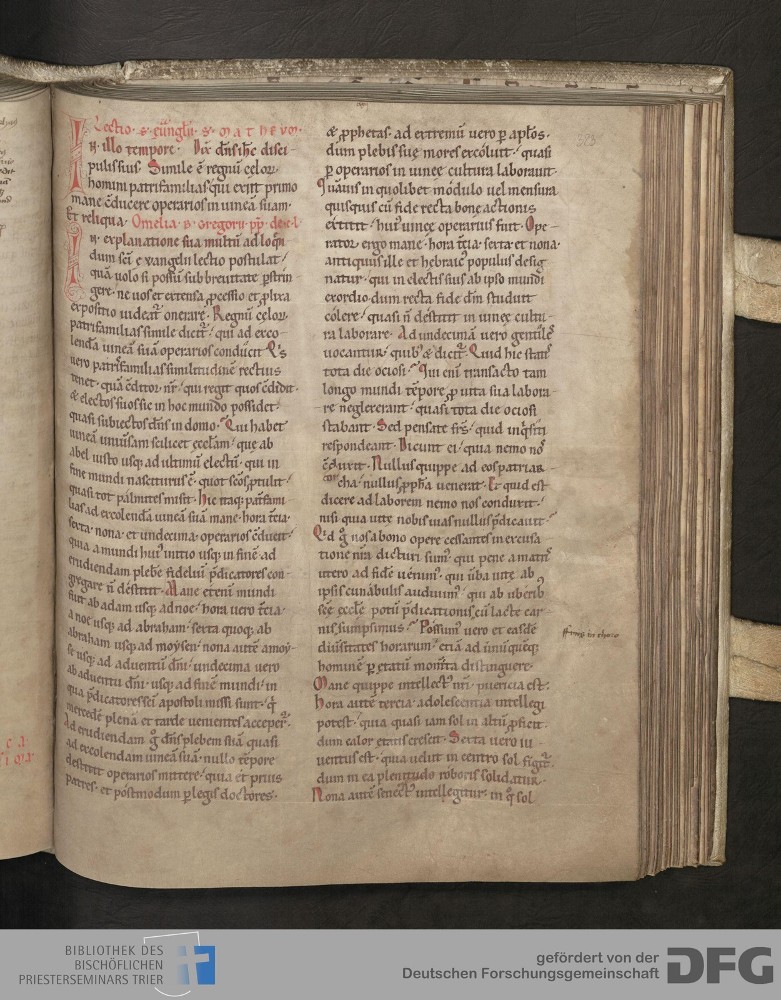 Lectio. s. eunglii. s. MATHEVM.
IN. illo tempore. Dix dns ihc disci-
pulis suis. Simile ē regnū celor
homini patrifamilias qui exiit primo
mane cducere operarios in uineā suam.
Et reliqua. Omelia. b. Gregorii. pp. de e. l.
IN. explanatione sua multū ad loqndi
dum sci euangelii lectio postulat.
quā uolo si possū sub breuitate pstrin-
gere. ne uos et extensa pcessio et plixa
expositio uideat onerare. Regnū celor
patrifamilias simile dicit. qui ad exco-
lendā uineā suā operarios conducit. Qs
uero patrisfamilias similitudinē rectius
tenet. quā cditor nr. qui regit quos cdidit.
& electos suos sic in hoc mundo possidet.
quasi subiectos dns in domo. Qui habet
uineā uniuersam scilicet eccłam. que ab
abel iusto usq ad ultimū electū. qui in
fine mundi nasciturus ē. quot scos ptulit.
quasi tot palmites misit. Hic itaq patfami-
lias ad excolendā uineā suā mane. hora tcia.
sexta. nona. et undecima. operarios cducit.
quia a mundi hui initio usq in finē ad
erudiendam plebē fideliū pdicatores con-
gregare n destitit. Mane etenī mundi
fuit ab adam usq ad noe. hora uero tcia.
a noe usq ad abraham. sexta quoq ab
abraham usq ad moysen. nona autē a moy-
se usq ad aduentū dni. undecima uero
ab aduentu dni. usq ad finē mundi. in
qua pdicatores sci apostoli missi sunt. q
mercedē plenā et tarde uenientes acceper.
Ad erudiendam g dns plebem suā quasi
ad excolendam uineā suā. nullo tēpore
destitit operarios mittere. quia et prius
patres. et postmodum p legis doctores.
& pphetas. ad extremū uero p aplos.
dum plebis sue mores excoluit. quasi
p operarios in uinee cultura laborauit.
Quāuis in quolibet modulo uel mensura
quisquis cū fide recta bone actionis
extitit. hui uinee operarius fuit. Ope-
rator ergo mane. hora tcia. sexta et nona.
antiquus ille et hebraic populus desig
natur. qui in electis suis ab ipso mundi
exordio dum recta fide dm studuit
colere. quasi n destitit in uinee cultu-
ra laborare. Ad undecimā uero gentiles
uocantur. quib & dicit. Quid hic statis
tota die ociosi. Qui eni transacto tam
longo mundi tēpore p uita sua labora-
re neglexerant. quasi tota die ociosi
stabant. Sed pensate frs. quid inqsiti
respondeant. Dicunt ei. quia nemo nos
cduxit. Nullus quippe ad eos patriar-
cha. nullus ppha uenerat. Et quid est
dicere ad laborem nemo nos conduxit.
nisi quia uite nobis uias nullus pdicauit.
Qd g nos a bono opere cessantes in excusa
tione nra dicturi sum. qui pene a matris
utero ad fidē uenim. qui uba uite ab
ipsis cunabulis audiuim. qui ab uberib
sce eccle potū pdicationis cū lacte car-
nis sumpsimus. Possum uero et easdē
diuersitates horarum etiā ad unūquēq
hominē p etatū momta distinguere.
Mane quippe intellect nri. puericia est.
Hora autē tercia. adolescentia intellegi
potest. quia quasi iam sol in altū pficit.
dum calor etatis crescit. Sexta uero iu-
uentus est. quia uelut in centro sol figit.
dum in ea plenitudo roboris solidatur.
Nona autē senect intellegitur. in q sol
BIBLIOTHEK DES
BISCHÖFLICHEN
PRIESTERSEMINARS TRIER
gefördert von der
Deutschen Forschungsgemeinschaft
DFG